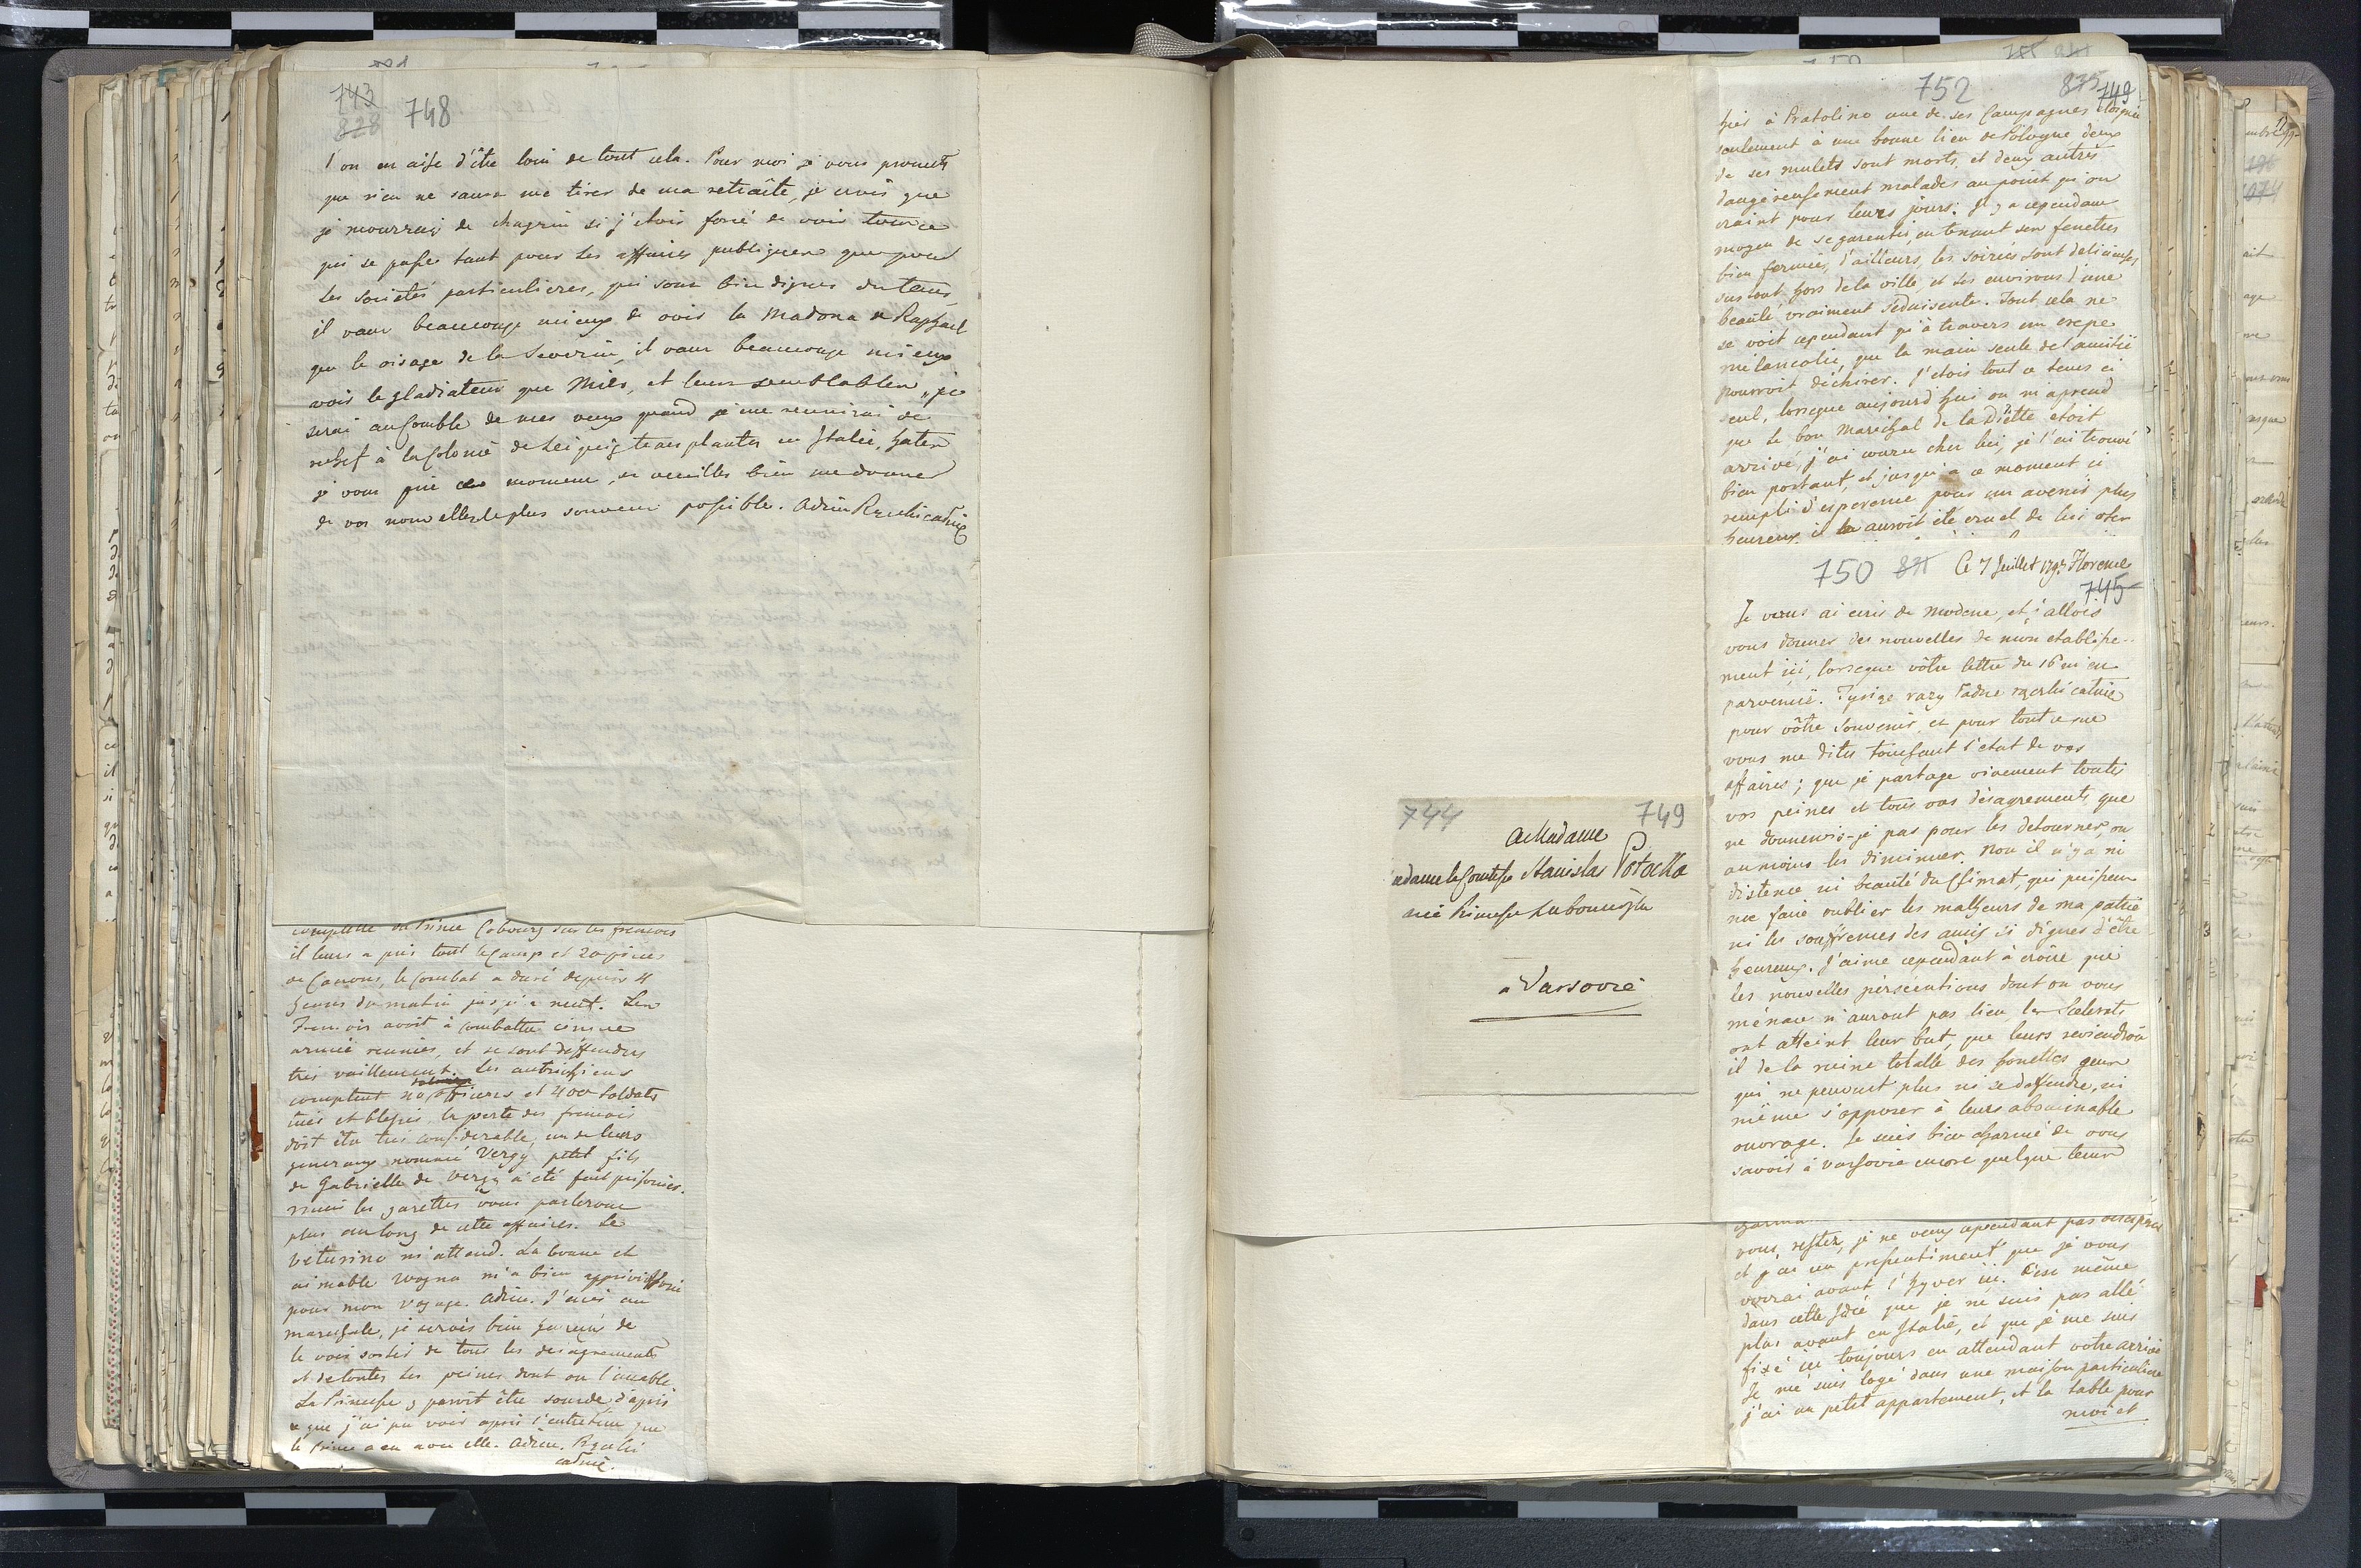 743
828 748
l'on en aise d'être loin de tout cela. Pour moi je vous promets
que rien ne saura me tirer de ma retraite, je crois que
je mourrai de chagrin si j'étois forcé de voir tout ce
qui se passe tant pour les affaires publiques que pour
les societés particulieres, qui sont bien dignes du tems
il vaut beaucoup mieux de voir la Madona de Raphael
que le visage de la Severin, il vaut beaucoup mieux
voir le gladiateur que Miles, et leurs semblables, je
serai au comble de mes veux quand je me reunirai de
rechef à la Colonie de Leipzig transplantée en Italie, hatez
je vous prie ce moment, et veuillez bien me donner
de vos nouvelles le plus souvent possible. Adieu Rzchi całuię
complette du Prince Cobourg sur les françois
il leurs a pris tout le Camp et 20 pieces
de Canons, le Combat a duré depuis 4
heures du matin jusqu'a neuf. Les
François avoit à combattre
armée reunies, et se sont deffendus
tres vaillement. Les autrichiens
comptent officiers et 400 soldats
tués et blessés la perte des francois
doit être tres considerable, un de leurs
generaux nommé Vergy petit fils
de Gabrielle de Vergy a été fait prisonier.
les gazettes vous parlerons
plus au long de cette affaires. Le
veturino m'attend. La bonne et
aimable Wogna m'a bien
pour mon voyage. Adieu. J'ecris au
marechale, je serois bien heureux de
le voir sortir de tous les desagrements
et de toutes les peines dont on l'accable
La Princesse y paroit être sourde d'apres
ce que j'ai pu voir apres l'entretien que
le Prince a eu avec elle. Adieu. Rzchi
całuię.
744 749
A Madame
Madame la Comtesse Stanislas Potocka
née Princesse Lubomirska
a Varsovie
752 835 749
hier à Pratolino une de ses Campagnes eloignée
seulement à une bonne lieu de Pologne deux
de ses mulets sont morts, et deux autres
dangereusement malades au point qu'on
craint pour leurs jours. Il y a cependant
moyen de se garentir, en tenant ses fenetres
bien fermées, d'ailleurs, les soirées sont delicieuses
sur tout hors de la ville, et les environs d'une
beauté vraiment seduisente. Tout cela ne
se voit cependant qu'à travers un crepe
mélancolié, que la main seule de l'amitié
pourroit déchirer. J'etois tout ce tems ci
seul, lorsque aujourd'hui on m'aprend
que le bon Marechal de la Diëtte étoit
arrivé, j'ai couru chez lui, je l'ai trouvé
bien portant, et jusqu'a ce moment ci
rempli d'esperence pour un avenir plus
heureux. il auroit été cruel de lui oter
750 831 Ce 7 Juillet 1793 Florence
745
Je vous ai ecris de Modene, et j'allois
vous donner des nouvelles de mon etablisse-
ment ici, lorsque vôtre lettre du 16 m'en
parvenüe. Tysiąc razy Padne rączki całuię
pour vôtre souvenir, et pour tout ce que
vous me dites touchant l'etat de vos
affaires; que je partage vivement toutes
vos peines et tous vos desagrements que
ne donnerois-je pas pour les detourner, ou
au moins les diminuer. Non il n'y a ni
distence ni beauté du Climat, qui puissent
me faire oublier les malheurs de ma patrie
ni les souffrences des amis si dignes d'être
heureux. J'aime cependant à croire que
les nouvelles persecutions dont on vous
ménace n'auront pas lieu les Scelerats
ont atteint leur but, que leurs reviendroit
il de la ruine totalle des honettes gens
qui ne peuvent plus ni se deffendre, ni
même s'opposer à leurs abominable
ouvrage. Je suis bien charmé de vous
savoir à Varsovie encore quelque tems
vous restez, je ne veux cependant pas
et j'ai un pressentiment que je vous
verrai avant l'hyver ici. C'est même
dans cette Idée que je ne suis pas allé
plus avant en Italie, et que je me suis
fixé ici toujours en attendant votre arrivée
Je me suis logé dans une maison particuliere
j'ai un petit appartement, et la table pour
moi et